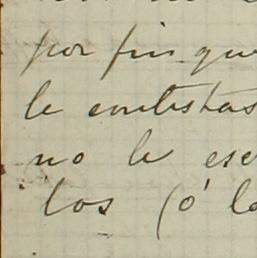 por fin que
le contestas
no le esc
los (ó lo